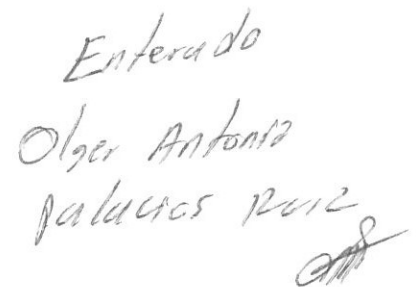 Enterado
Olger Antonio
Palacios Ruiz